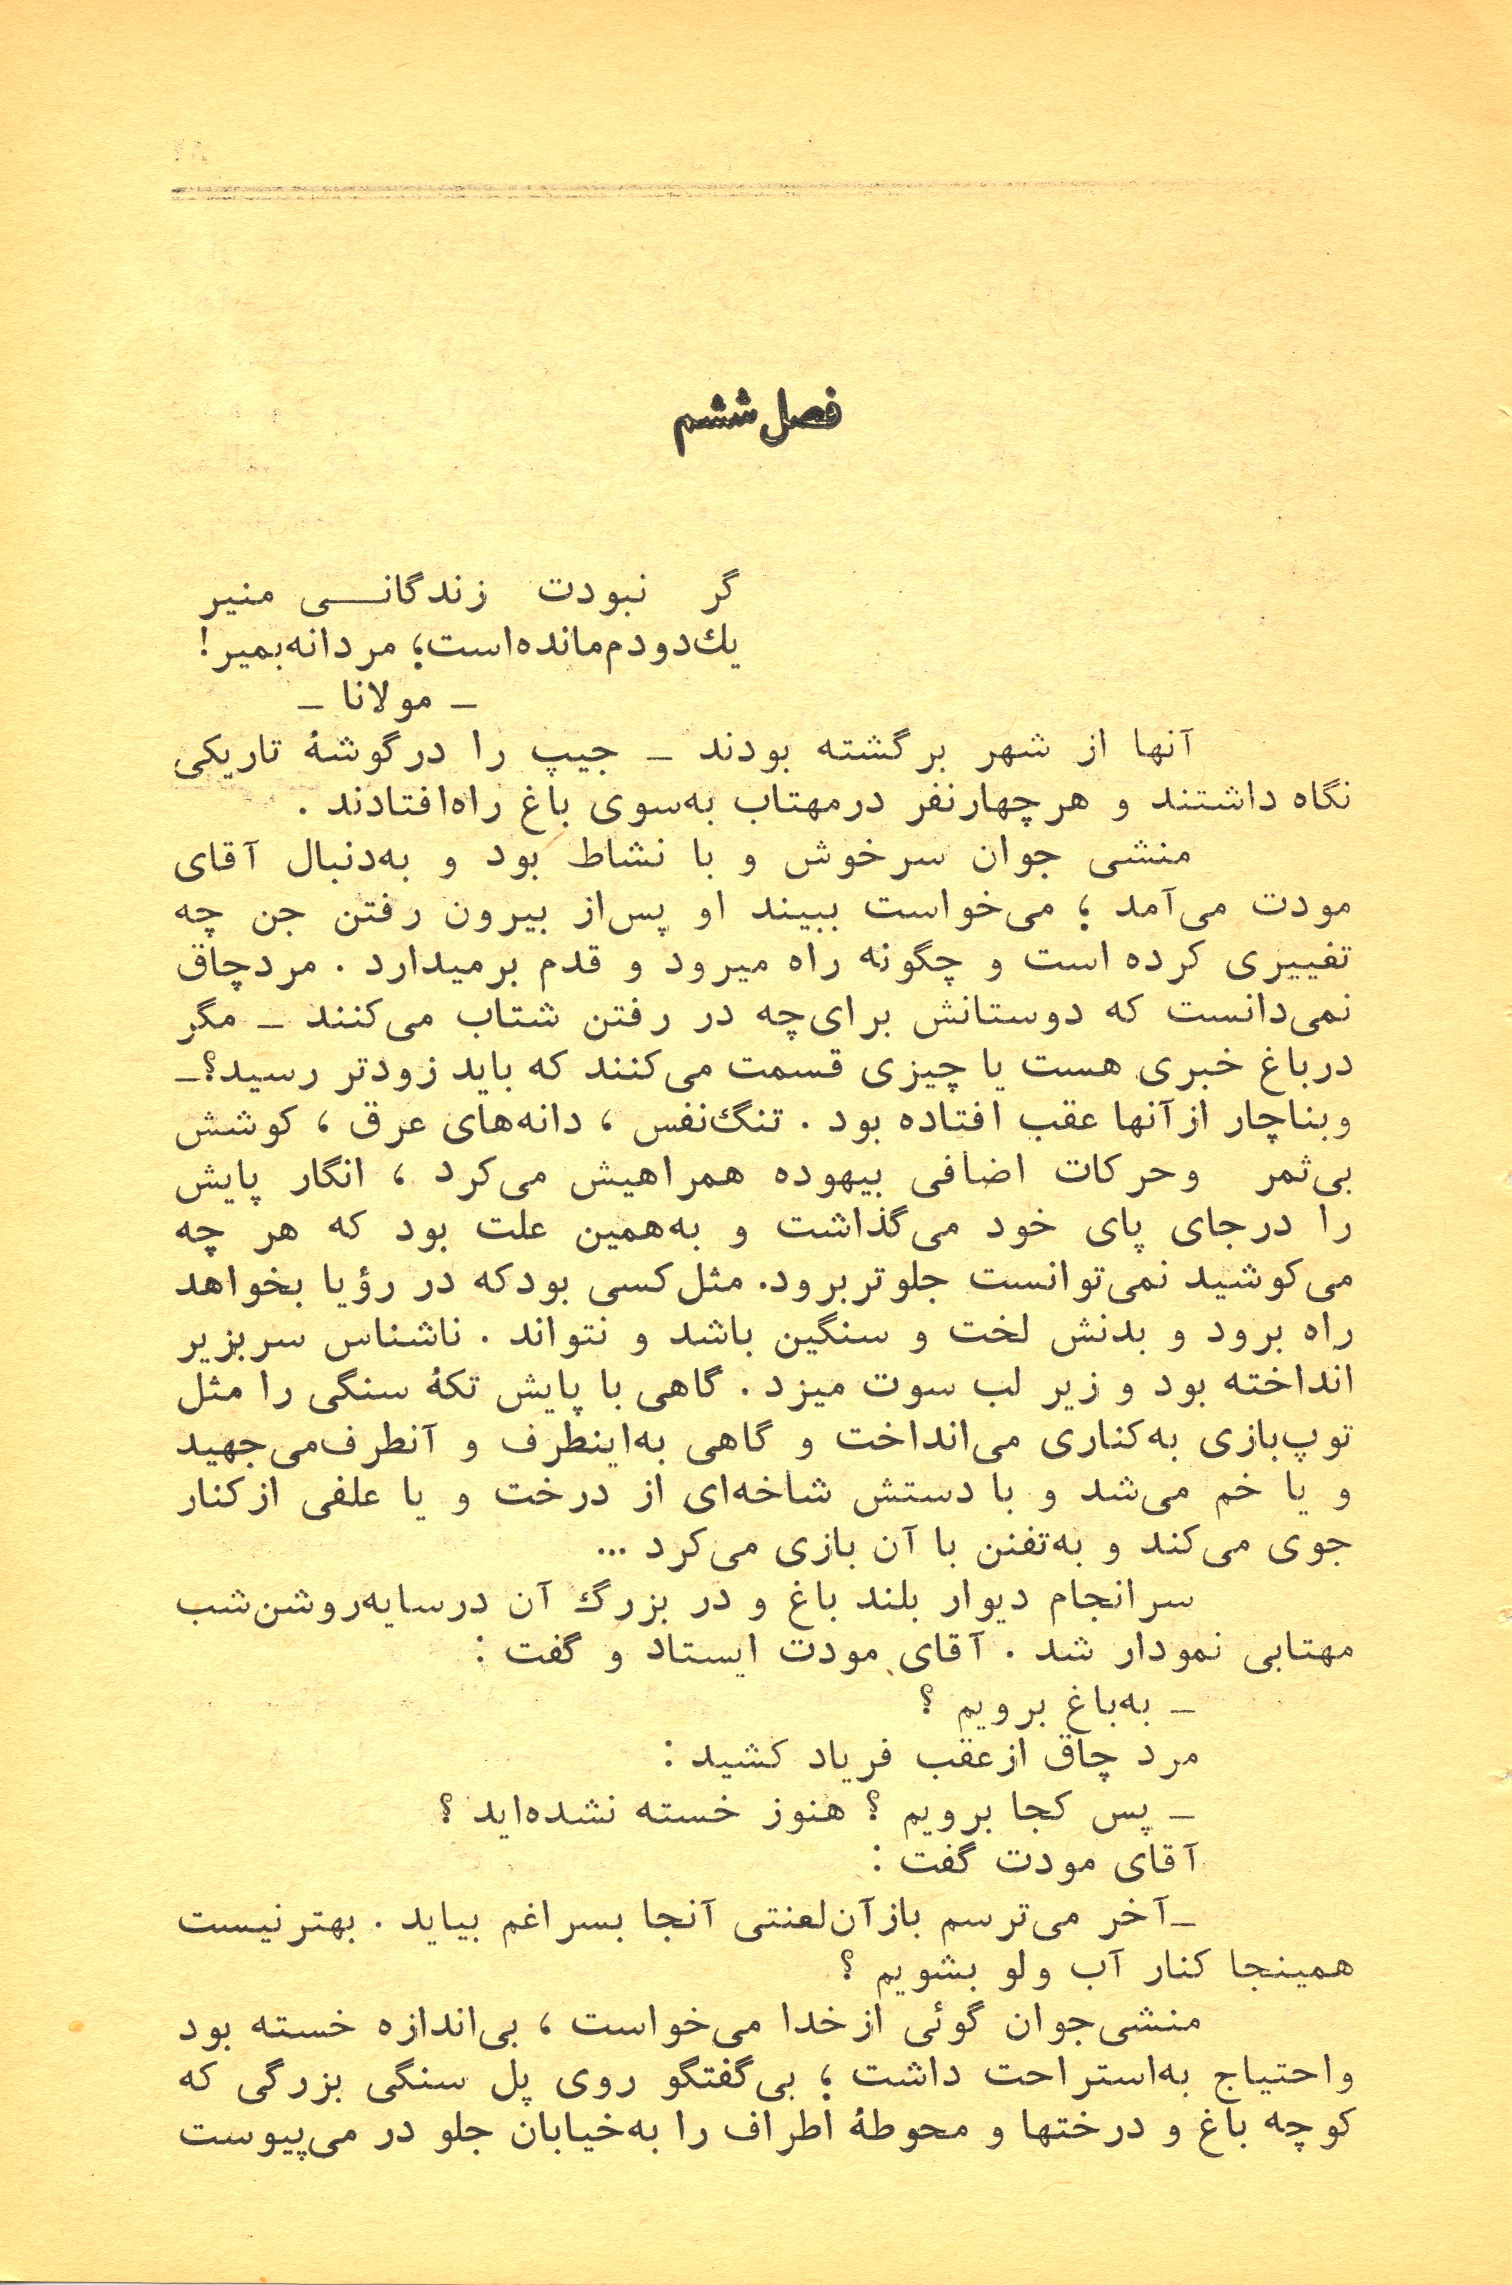 فصل ششم
گر نبودت زندگانی منیر
یك‌دودم‌مانده‌است؛ مردانه‌بمیر!
ـ مولانا ـ
آنها از شهر برگشته بودند ـ جیپ را درگوشهٔ تاریکی
نگاه داشتند و هرچهارنفر درمهتاب به‌سوی باغ راه‌افتادند .
منشی جوان سرخوش و با نشاط بود و به‌دنبال آقای
مودت می‌آمد ؛ می‌خواست ببیند او پس‌از بیرون رفتن جن چه
تغییری کرده است و چگونه راه میرود و قدم برمیدارد . مردچاق
نمی‌دانست که دوستانش برای‌چه در رفتن شتاب می‌کنند ـ مگر
درباغ خبری هست یا چیزی قسمت می‌کنند که باید زودتر رسید؟ـ
وبناچار ازآنها عقب افتاده بود . تنگ‌نفس ، دانه‌های عرق ، کوشش
بی‌ثمر وحرکات اضافی بیهوده همراهیش می‌کرد ، انگار پایش
را درجای پای خود می‌گذاشت و به‌همین علت بود که هر چه
می‌کوشید نمی‌توانست جلوتربرود. مثل‌کسی بودکه در رؤیا بخواهد
راه برود و بدنش لخت و سنگین باشد و نتواند . ناشناس سربزیر
انداخته بود و زیر لب سوت میزد . گاهی با پایش تکهٔ سنگی را مثل
توپ‌بازی به‌کناری می‌انداخت و گاهی به‌اینطرف و آنطرف‌می‌جهید
و یا خم می‌شد و با دستش شاخه‌ای از درخت و یا علفی ازکنار
جوی می‌کند و به‌تفنن با آن بازی می‌کرد ...
سرانجام دیوار بلند باغ و در بزرگ آن درسایه‌روشن‌شب
مهتابی نمودار شد . آقای مودت ایستاد و گفت :
ـ به‌باغ برویم ؟
مرد چاق ازعقب فریاد کشید :
ـ پس کجا برویم ؟ هنوز خسته نشده‌اید ؟
آقای مودت گفت :
ـ‌آخر می‌ترسم بازآن‌لعنتی آنجا بسراغم بیاید . بهترنیست
همینجا کنار آب ولو بشویم ؟
منشی‌جوان گوئی ازخدا می‌خواست ، بی‌اندازه خسته بود
واحتیاج به‌استراحت داشت ؛ بی‌گفتگو روی پل سنگی بزرگی که
کوچه باغ و درختها و محوطهٔ اطراف را به‌خیابان جلو در می‌پیوست